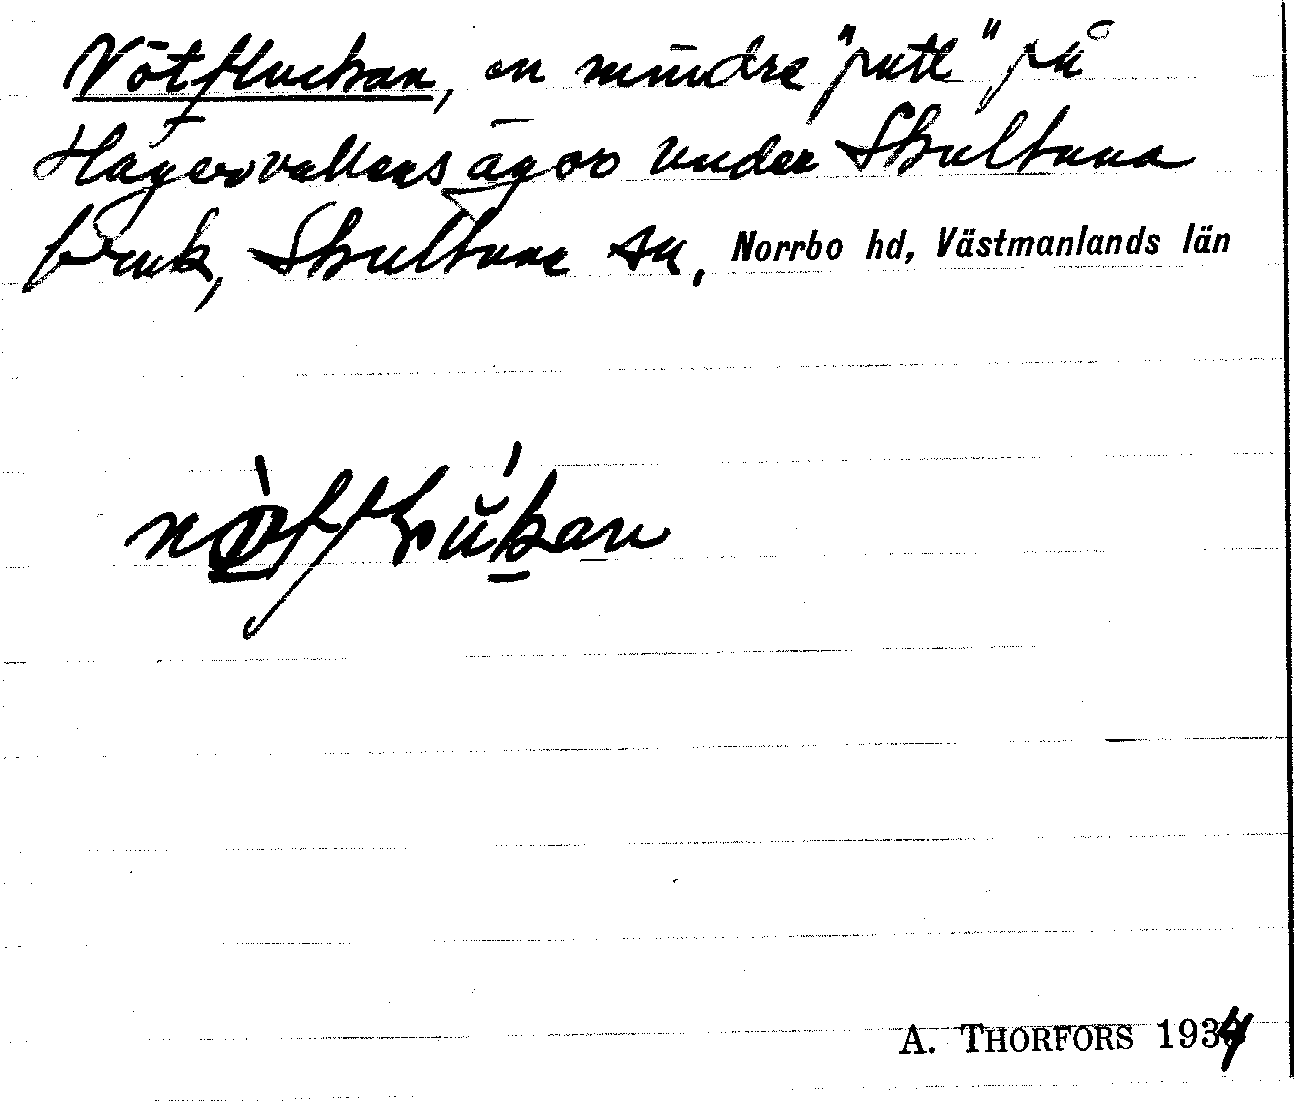 Nötfluckan, en mindre "putt" på
Hagervallens ägor under Skultuna
bruk, Skultuna sn, Norrbo hd, Västmanlands län
A. THORFORS 1934